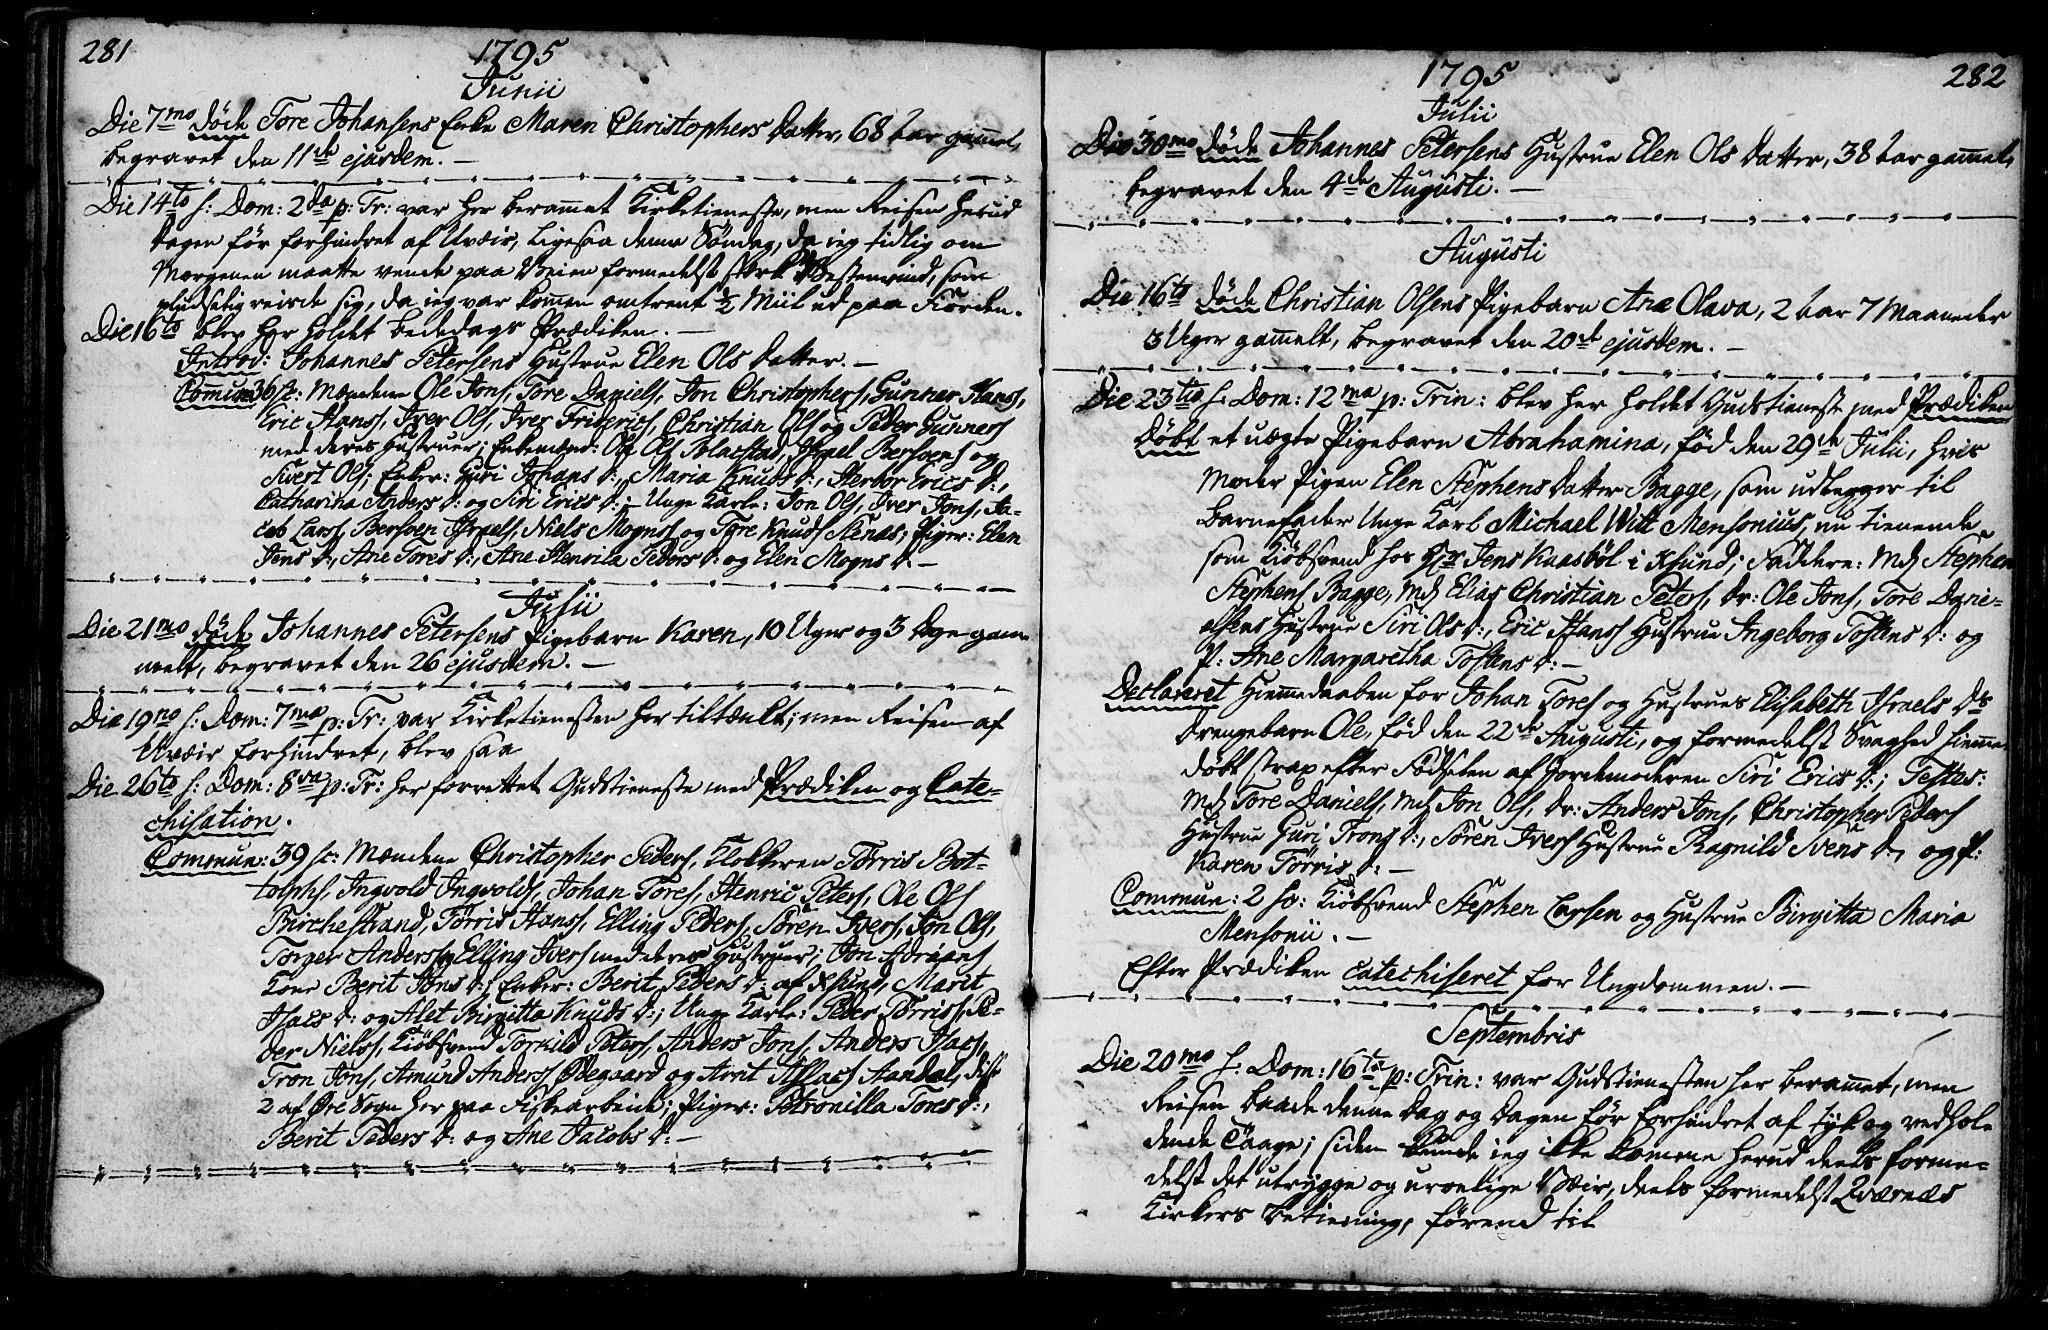 281
1795
Junii
Die 7mo døde Tore Johansens Enke Maren Christophers Datter, 68 Aar gammel,
begravet den 11te ejusdem. —
Die 14to s: Dom: 2da p: Tr: var her berammet Kirketieneste, men Reisen herud
Dagen før forhindret af Uveir, ligesaa denne Søndag, da jeg tidlig om
Morgenen maatte vende paa Veien formedelst stærk Vestenvind, som
pludselig reiste sig, da jeg var kommen omtrent ½ Miil ud paa Fiorden.
Die 16to blev her holdet Bededags Prædiken. —
Introd: Johannes Petersens Hustrue Elen Ols Datter. —
Commun: 36 s:: Mændene Ole Jons, Tore Daniels, Jon Christophers, Gunner Hans,
Eric Hans, Iver Ols, Iver Friderics, Christian Ols og Peder Gunners
med deres Hustruer; Enkemænd: Ole Ols Blaestad, Israel Bersvens og
Sivert Ols; Enker: Guri Johans D:, Maria Knuds D:, Herbor Erics D:,
Catharina Anders D: og Siri Erics D:; Unge Karle: Jon Ols, Iver Jons, Ja-
cob Lars, Bersven Israels, Niels Mogns og Tore Knuds Stenæs; Piger: Elen
Jens D:, Ane Tores D:, Ane Henrica Peders D: og Elen Mogns D: —
Julii
Die 21mo døde Johannes Petersens Pigebarn Karen, 10 Uger og 3 Dage gam-
melt, begravet den 26 ejusdem. —
Die 19no s: Dom: 7ma p: Tr: var Kirketienesten her tiltænkt; men Reisen af
Uveir forhindret, blev saa
Die 26to s: Dom: 8va p: Tr: her forrettet Gudstieneste med Prædiken og Cate-
chisation.
Commun: 39 s:: Mændene Christopher Peders, Klokkeren Tørris Bot-
tolphs, Ingvold Ingvolds, Johan Tores, Henric Peters, Ole Ols
Birchestrand, Tørris Hans, Elling Peders, Søren Ivers, Jon Ols,
Torger Anders og Elling Ivers med deres Hustruer; Jon Adrians
Kone Berit Jons D:; Enker: Berit Peders D: af Xsund, Marit
Isacs D: og Alet Birgitta Knuds D:; Unge Karle: Peder Tørris, Pe-
der Niels, Kiøbsvend Torkild Peters, Anders Jons, Anders Isacs,
Tron Jons, Amund Anders Ødegaard og Arnt Aslacs Aandal, disse
2 af Øre Sogn her paa Fiskearbeide; Piger: Petronilla Tores D:,
Berit Peders D: og Ane Jacobs D: —
282
1795
Julii
Die 30mo døde Johannes Petersens Hustrue Elen Ols Datter, 38 Aar gammel,
begravet den 4de Augusti. —
Augusti
Die 16to døde Christian Olsens Pigebarn Ane Olava, 2 Aar 7 Maaneder
3 Uger gammelt, begravet den 20de ejusdem. —
Die 23tio s: Dom: 12ma p: Trin: blev her holdet Gudstieneste med Prædiken
Døbt et uægte Pigebarn Abrahamina, fød den 29de Julii, hvis
Moder Pigen Elen Stephens Datter Bagge, som udlegger til
Barnefader Unge Karl Michael Witt Mensonius, nu tienende
som Kiøbsvend hos Hr Jens Kaasbøl i Xsund; Faddere: Md Stephen
Stephens Bagge, Md Elias Christian Peters, Dr: Ole Jons, Tore Dani-
elsens Hustrue Siri Ols D:, Eric Hans Hustrue Ingeborg Tostens D: og
P: Ane Margaretha Tostens D: —
Declareret Hiemmedaaben for Johan Tores og Hustrues Elisabeth Israels Ds
Drengebarn Ole, fød den 22de Augusti, og formedelst Svaghed hiemme-
døbt strax efter Fødselen af Jordemoderen Siri Erics D:; Testes:
Md Tore Daniels, Md Jon Ols, Dr: Anders Jons, Christopher Peders
Hustrue Guri Trons D:, Søren Ivers Hustrue Ragnild Svens D:, og P:
Karen Tørris D: —
Commun: 2 s:: Kiøbsvend Stephen Larsen og Hustrue Birgitta Maria
Mensonii. —
Efter Prædiken catechiseret for Ungdommen. —
Septembris
Die 20mo s: Dom: 16ta p: Trin: var Gudstienesten her berammet, men
Reisen baade denne Dag og Dagen før forhindret af tyk og vedhol-
dende Taage; siden kunde jeg ikke komme herud deels forme-
delst det utrygge og uroelige Veir, deels formedelst Qværnæs
Kirkers Betiening, førend til